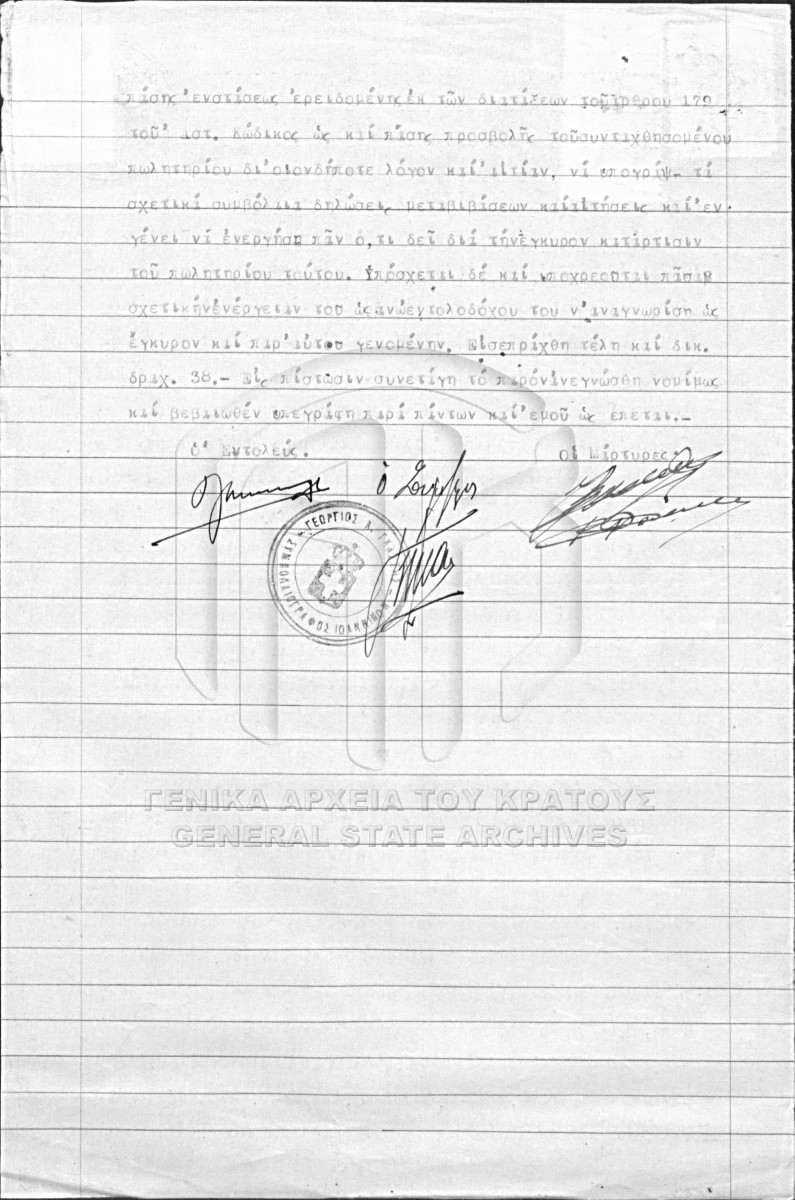 πάσης ἐνστάσεως ἐρειδομένης ἐκ τῶν διατάξεων τοῦ ἄρθρου 179
τοῦ Ἀστ. Κώδικος ὡς καί πάσης προσβολῆς τοῦ συνταχθησομένου
πωλητηρίου δι' οἱονδήποτε λόγον καί αἰτίαν, νά ὑπογράψ- τά
σχετικά συμβόλαια δηλώσεις μεταβιβάσεων καί αἰτήσεις καί ἐν
γένει νά ἐνεργήσῃ πᾶν ὅ,τι δεῖ διά τήν ἔγκυρον κατάρτισιν
τοῦ πωλητηρίου τούτου. Ὑπόσχεται δέ καί ὑποχρεοῦται πᾶσαν
σχετικήν ἐνέργειαν του ὡς ἄνω ἐντολοδόχου του ν' ἀναγνωρίσῃ ὡς
ἔγκυρον καί παρ' αὐτοῦ γενομένην. Εἰσεπράχθη τέλη καί δικ.
δραχ. 38.- Εἰς πίστωσιν συνετάγη τό παρόν ἀνεγνώσθη νομίμως
καί βεβαιωθέν ὑπεγράφη παρά πάντων καί ἐμοῦ ὡς ἕπεται.-
Ὁ Ἐντολεύς. Οἱ Μάρτυρες
ΓΕΩΡΓΙΟΣ Α.
ΣΥΜΒΟΛΑΙΟΓΡΑΦΟΣ ΙΩΑΝΝΙΝΩΝ
ΓΕΝΙΚΑ ΑΡΧΕΙΑ ΤΟΥ ΚΡΑΤΟΥΣ
GENERAL STATE ARCHIVES